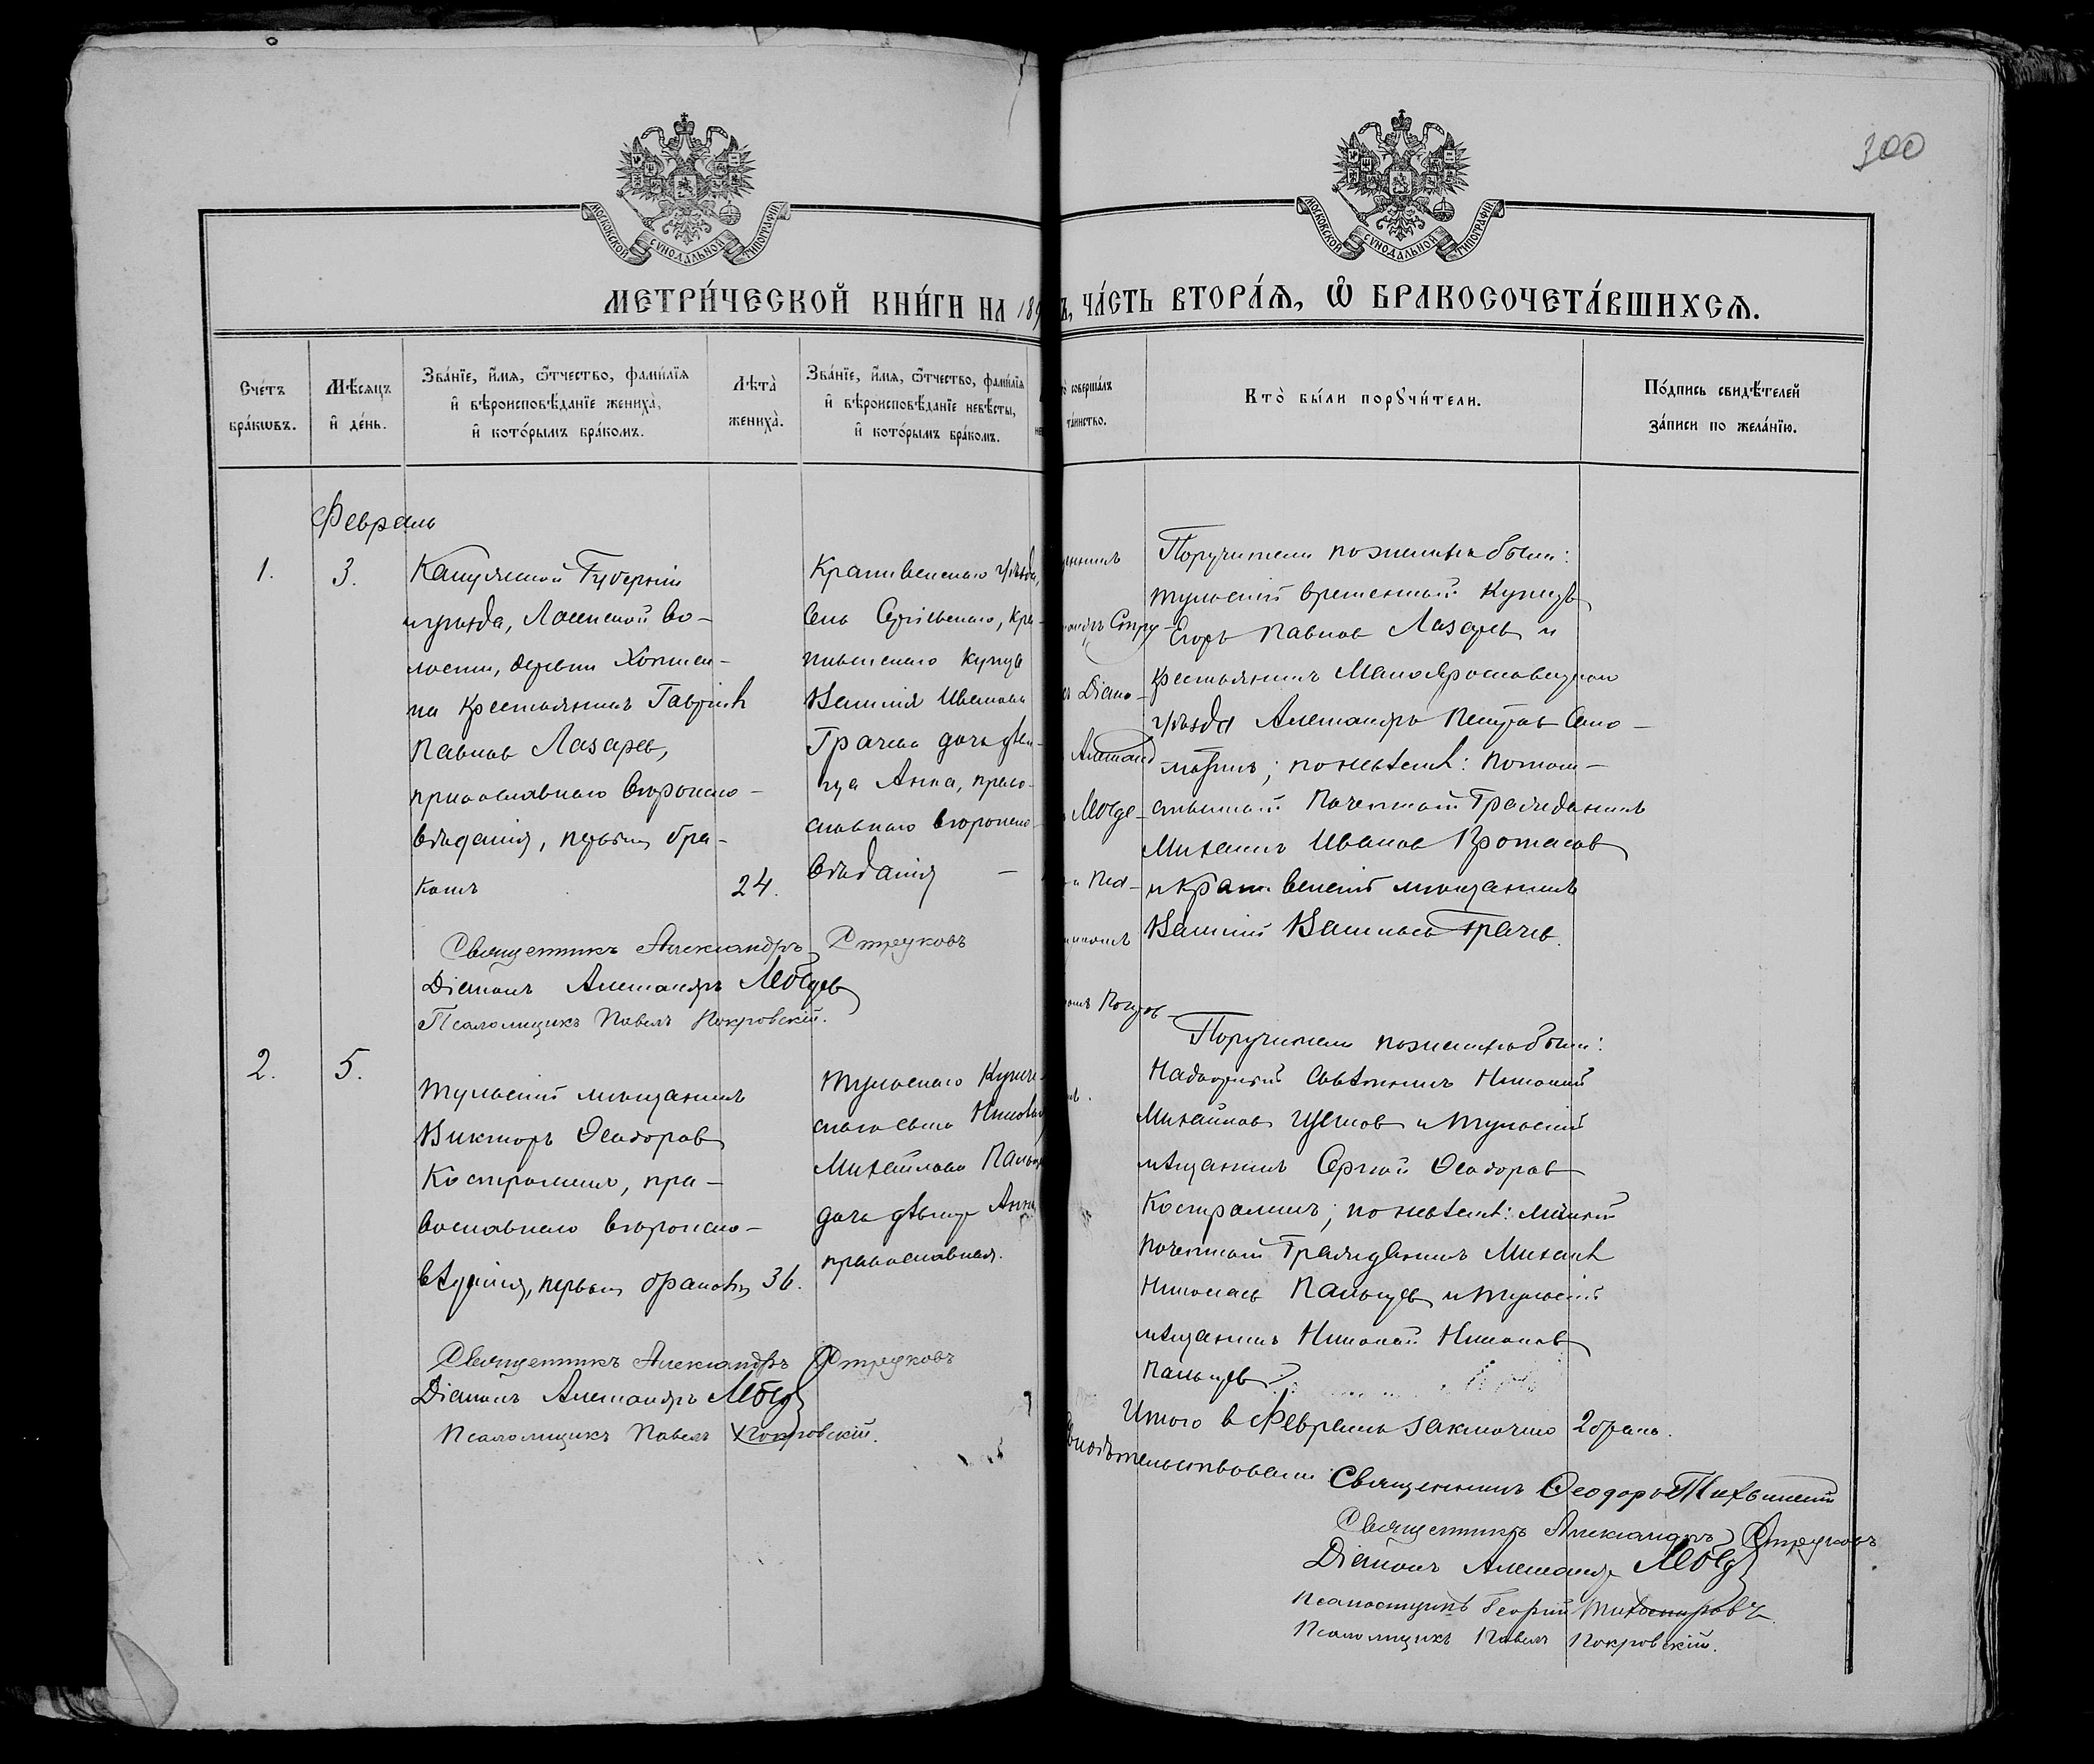 300
МОСКОВСКОЙ СѴНОДАЛЬНОЙ ТИПОГРАФІИ
МОСКОВСКОЙ СѴНОДАЛЬНОЙ ТИПОГРАФІИ
МЕТРИ́ЧЕСКОЙ КНИ́ГИ НА 189
Ъ, ЧА́СТЬ ВТОРА́Ѧ, Ѽ БРАКОСОЧЕТА́ВШИХСѦ.
Сче́тъ бра́кѡвъ.
Мѣ́сѧцъ и҆ де́нь.
Зва́нїе, и҆́мѧ, ѻ҆́тчество, фами́лїѧ
и҆ вѣроисповѣ́данїе жениха̀,
и҆ кото́рымъ бра́комъ.
Лѣта̀ жениха̀.
Зва́нїе, и҆́мѧ, ѻ҆́тчество, фами́лїѧ
и҆ вѣроисповѣ́данїе невѣ́сты,
и҆ кото́рымъ бра́комъ.
соверша́лъ
та́инство.
Кто̀ бы́ли порꙋчи́тели.
По́дпись свидѣ́телей
за́писи по жела́нїю.
Февраль
1.
3.
Калужской Губерніи
и уѣзда, Ло Во-
лости, деревни
на Крестьянинъ Гавріилъ
Павловъ Лазаревъ,
православнаго вѣроиспо-
вѣданія, первымъ бра-
комъ
24.
Крапивенскаго уѣзда,
села Сергіевскаго, Кра-
пивенскаго Купца
Василія Иванова
Грачева дочь дѣви-
ца Анна, право-
славнаго вѣроиспо-
вѣданія
Стру-
Діако-
Александ
Лебеде-
Поручители по женихѣ были:
Тульскій временный Купецъ
Егоръ Павловъ Лазаревъ и
Крестьянинъ Малоярославецкаго
уѣзда Александръ Петровъ
по невѣстѣ: Потом-
ственный Почетный Гражданинъ
Михаилъ Ивановъ Протасовъ
и Крапивенскій мѣщанинъ
Василій Васильевъ Грачевъ.
Священникъ Александръ Струковъ
Діаконъ Александръ Лебедевъ
Псаломщикъ Павелъ Покровскій.
2.
5.
Тульскій мѣщанинъ
Викторъ Ѳеодоровъ
Костроминъ, пра-
вославнаго вѣроиспо-
вѣданія, первымъ бракомъ
36.
Тульскаго Купече-
скаго сына Николая
Михайлова Пальц
дочь дѣвица Анна
православная.
Поручители по женихѣ были:
Надворный Совѣтникъ Николай
Михайловъ и Тульскій
мѣщанинъ Сергѣй Ѳеодоровъ
Костроминъ; по невѣстѣ: Личный
почетный Гражданинъ Михаилъ
Николаевъ Пальцевъ и Тульскій
мѣщанинъ Николай Николаевъ
Пальцевъ
Священникъ Александръ Струковъ
Діаконъ Александръ Лебедевъ
Псаломщикъ Павелъ Покровскій.
Итого въ Февралѣ заключено 2 брака.
Священникъ Ѳеодоръ Тихвинскій
Священникъ Александръ Струковъ
Діаконъ Александръ Лебедевъ
Псаломщикъ Георгій
Псаломщикъ Павелъ Покровскій.